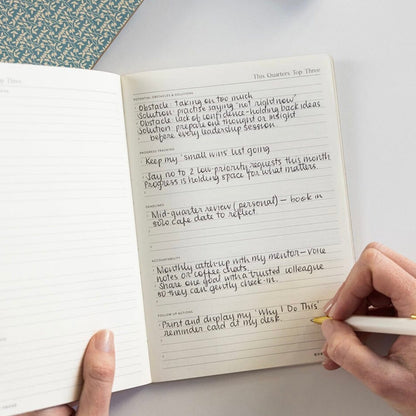 Top Three
This Quarters Top Three
POTENTIAL OBSTACLES & SOLUTIONS
Obstacle: taking on too much
Solution: practise saying "not right now"
Obstacle: lack of confidence - holding back ideas
Solution: prepare one thought or insight
before every leadership session
PROGRESS TRACKING
Keep my 'small wins' list going
Say no to 2 low-priority requests this month
Progress is holding space for what matters.
TIMELINES
Mid-quarter review (personal) – book in
solo cafe date to reflect.
ACCOUNTABILITY
Monthly catch-up with my mentor – voice
notes or coffee chats.
Share one goal with a trusted colleague
so they can gently check-in.
FOLLOW UP ACTIONS
Print and display my 'Why I Do This'
reminder card at my desk.